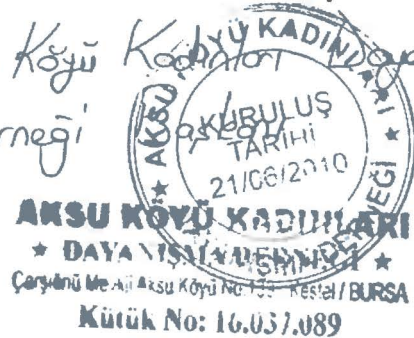 Köyü Kadınları Daya
rneği Başkanı
AKSU KÖYÜ KADINLARI DERNEĞİ
KURULUŞ
TARİHİ
21/06/2010
AKSU KÖYÜ KADINLARI
★ DAYANIŞMA DERNEĞİ ★
Çarşıönü Aksu Köyü Kestel / BURSA
Kütük No: 16.037.089